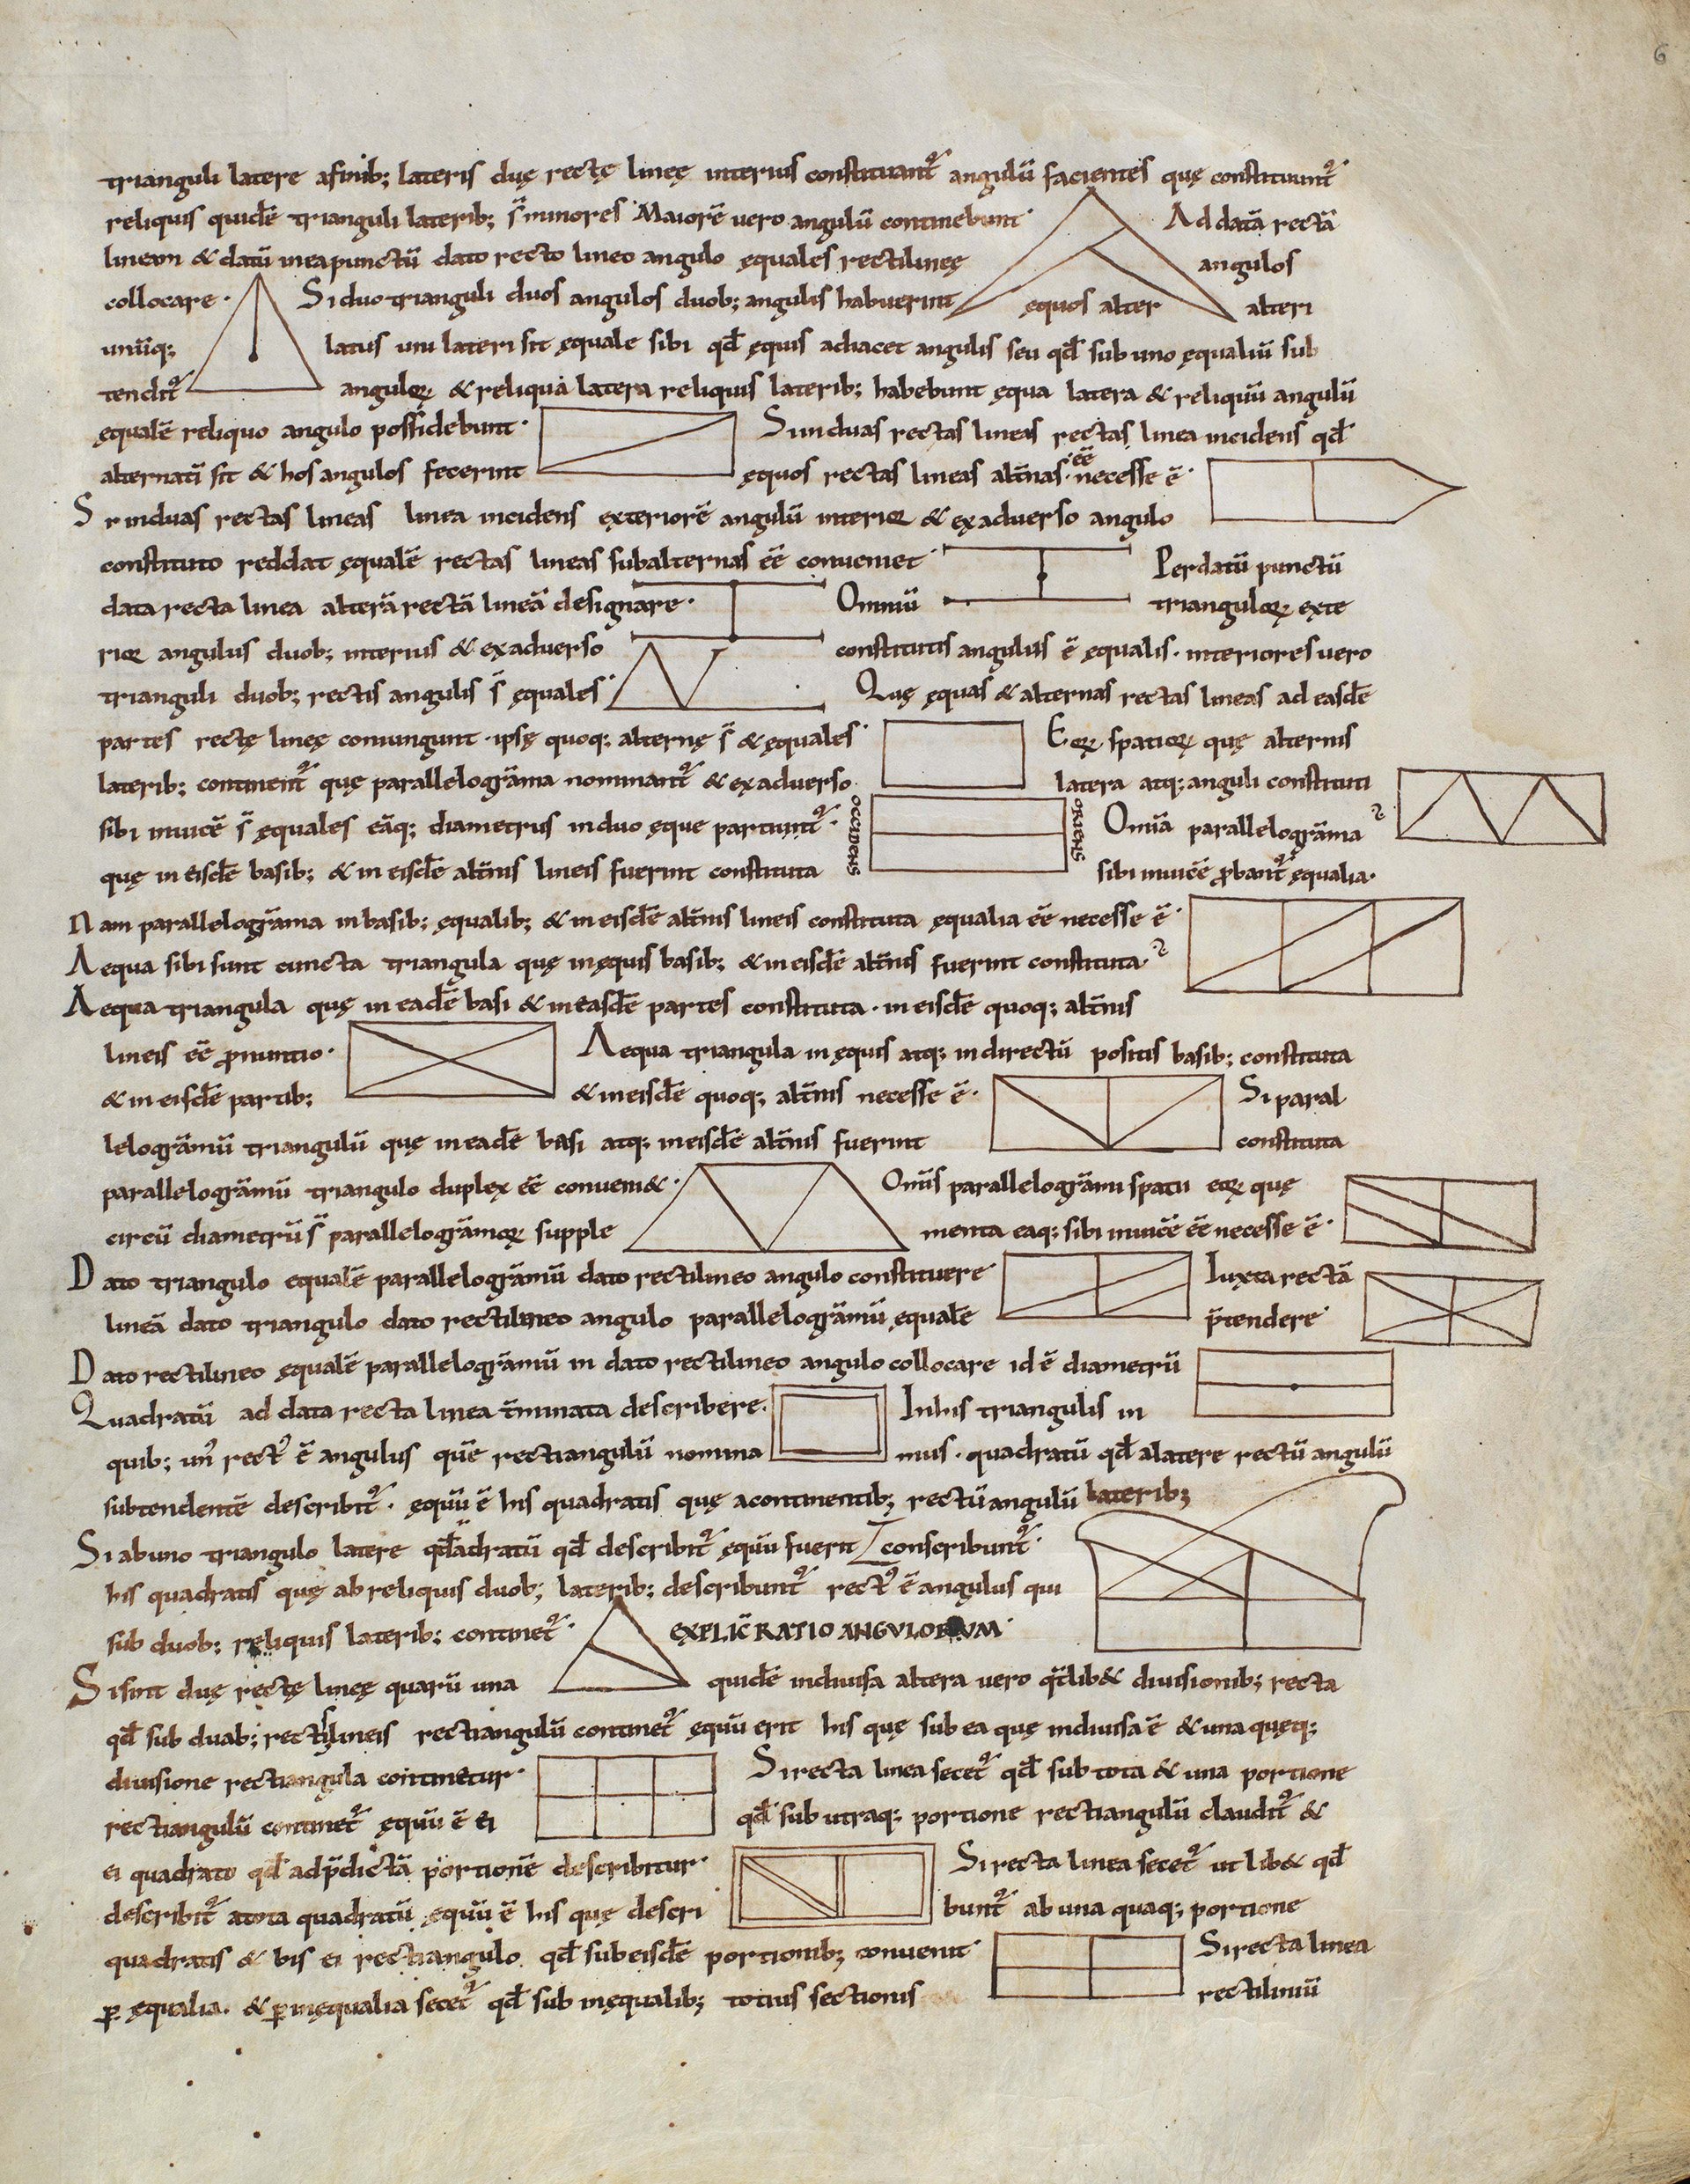 6
trianguli latere a finib; lateris duę rectę lineę interius constituant᷑ angulū facientes quę constituunt᷑
reliquis quidē trianguli laterib; s̄ minores Maiorē vero angulū continebunt· Ad datā rectā
lineam & datū in ea punctū dato recto lineo angulo ęquales rectilineę angulos
collocare· Si duo trianguli duos angulos duob; angulis habuerint ęquos alter alteri
unūq; latus uni lateri sit ęquale sibi qđ ęquis adiacet angulis seu qđ sub uno ęqualiū sub
tendit᷑ anguloꝝ & reliqua latera reliquis laterib; habebunt ęqua latera & reliquū angulū
ęqualē reliquo angulo possidebunt· Si in duas rectas lineas rectas linea incidens qđ
alternatī sit & hos angulos fecerint ęquos rectas lineas alt̄nas· ēē necesse ē·
Si in duas rectas lineas linea incidens exteriorē angulū interioꝝ & ex adverso angulo
constituto reddat ęqualē rectas lineas subalternas ēē conveniet· Per datū punctū
data recta linea alterā rectā lineā designare· Omniū trianguloꝝ exte
rioꝝ angulus duob; interius & ex adverso constitutis angulis ē ęqualis· interiores vero
trianguli duob; rectis angulis s̄ ęquales· Quę ęquas & alternas rectas lineas ad easdē
partes rectę lineę coniungunt· ipsę quoq; alternę s̄ & ęquales· Eoꝝ spatioꝝ quę alternis
laterib; continent᷑ quę parallelogrāma nominant᷑ & ex adverso latera atq; anguli constituti
sibi invicē s̄ ęquales eāq; diametrus in duo ęque partiunt᷑· OCCIDENS ORIENS Omīa parallelogrāma
quę in eisdē basib; & in eisdē alt̄nis lineis fuerint constituta sibi invicē ꝓbant᷑ ęqualia·
Nam parallelogrāma in basib; ęqualib; & in eisdē alt̄nis lineis constituta ęqualia ēē necesse ē·
Aequa sibi sunt cuncta triangula quę in ęquis basib; & in eisdē alt̄nis fuerint constituta·
Aequa triangula quę in eadē basi & in easdē partes constituta· in eisdē quoq; alt̄nis
lineis ēē ꝓnuntio· Aequa triangula in ęquis atq; in directū positis basib; constituta
& in eisdē partib; & in eisdē quoq; alt̄nis necesse ē· Si paral
lelogrāmū triangulū quę in eadē basi atq; in eisdē alt̄nis fuerint constituta
parallelogrāmū triangulo duplex ēē conveni&· Om̄is parallelogrāmi spatii eoꝝ quę
circū diametrū s̄ parallelogrāmoꝝ supple menta eaq; sibi invicē ēē necesse ē·
Dato triangulo equalē parallelogrāmū dato rectilineo angulo constituere· Iuxta rectā
lineā dato triangulo dato rectilineo angulo parallelogrāmū ęqualē p̄tendere·
Dato rectilineo ęqualē parallelogrāmū in dato rectilineo angulo collocare id ē diametrū
Quadratū ad data recta linea t̄minata describere. In his triangulis in
quib; un᷒ rect᷒ ē angulus quē rectiangulū nomina mus· quadratū qđ a latere rectū angulū
subtendentē describit᷑· ęquū ē his quadratis quę a continentib; rectū angulū laterib;
Si ab uno triangulo latere qđadratū qđ describit᷑ ęquū fuerit conscribunt᷑·
his quadratis quę ab reliquis duob; laterib; describunt᷑ rect᷒ ē angulus qui
sub duob; reliquis laterib; continet᷑· EXPLIC̄ RATIO ANGVLORVM·
Si sint duę rectę lineę quarū una quidē indivisa altera vero q̄dlib& divisionib; recta
qđ sub duab; rectis lineis rectiangulū continet᷑ ęquū erit his quę sub ea quę indivisa ē & una quęq;
divisione rectiangula continetur· Si recta linea secet᷑ qđ sub tota & una portione
rectiangulū continet᷑ ęquū ē ei qđ sub utraq; portione rectiangulū claudit᷑ &
ei quadrato qđ ad p̄dictā portionē describitur· Si recta linea secet᷑ ut lib& qđ
describit᷑ a tota quadratū ęquū ē his quę descri bunt᷑ ab una quaq; portione
quadratis & bis ei rectiangulo qđ sub eisdē portionib; convenit· Si recta linea
ꝑ ęqualia. & ꝑ inęqualia secet᷑ qđ sub inęqualib; totius sectionis rectiliniū